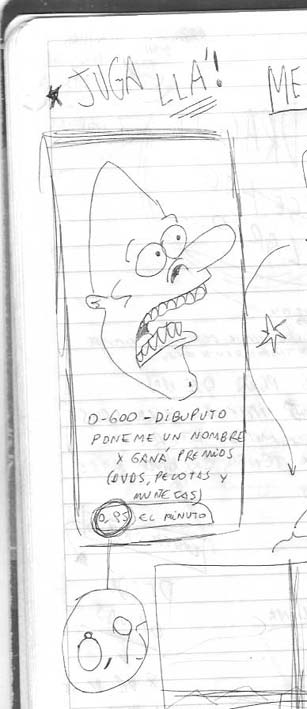 ★ JUGA LLÁ!
ME
0-600-DIBUPUTO
PONEME UN NOMBRE
X GANÁ PREMIOS
(DVDS, PELOTAS Y
MUÑECAS)
0,95 EL MINUTO
0,95